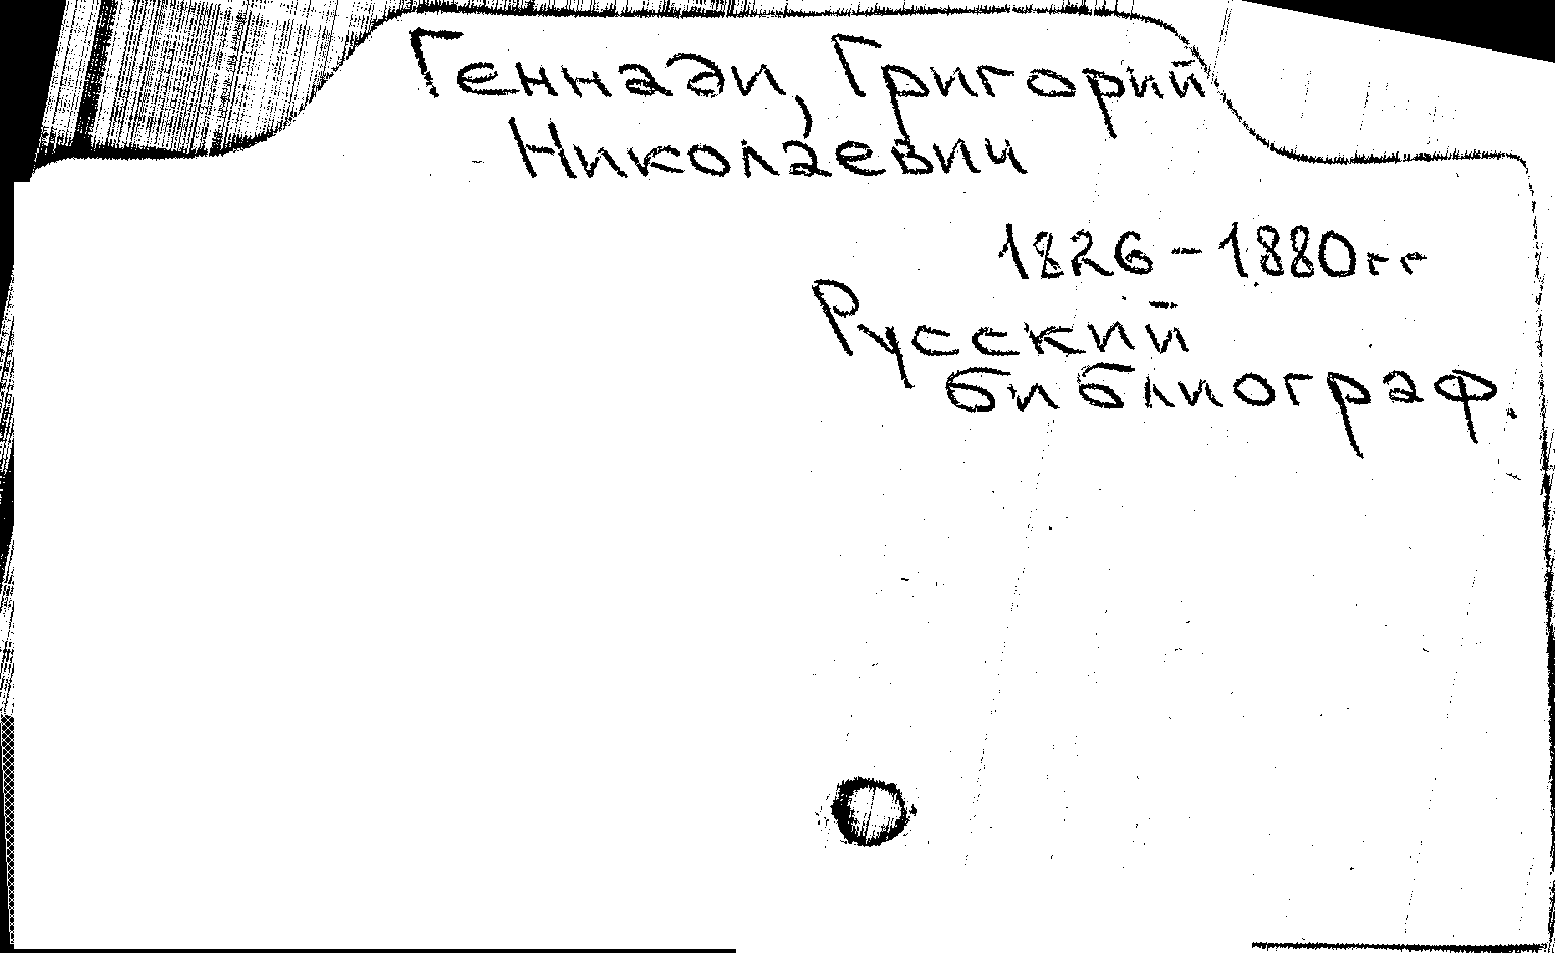 Геннади, Григорий
Николаевич
1826-1880гг
Русский
библиограф.